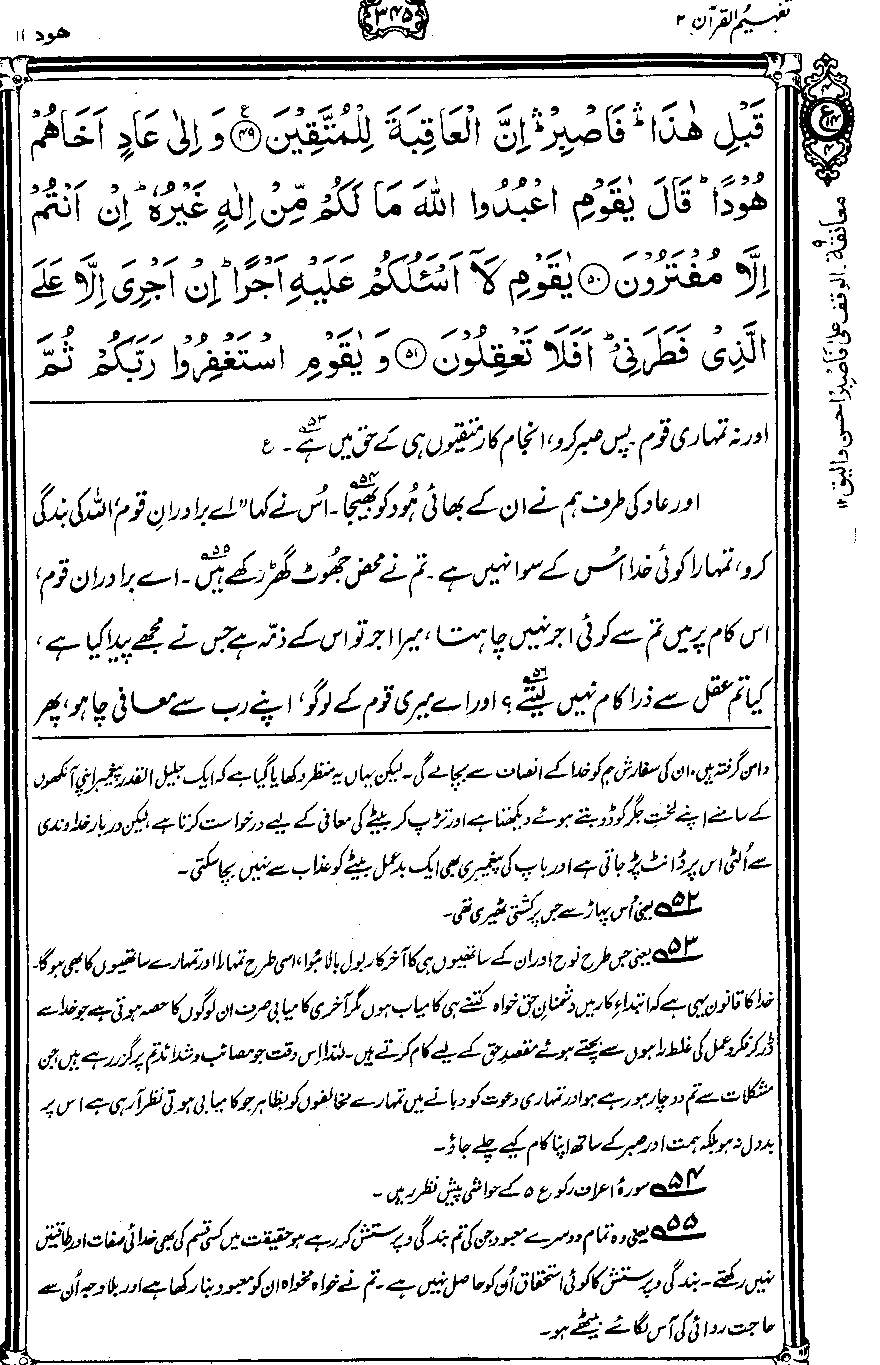 تفہیم القرآن ۲
۳۴۵
ھود ۱۱
قَبْلِ هٰذَا ۛؕ فَاصْبِرْ ۛؕ اِنَّ الْعَاقِبَةَ لِلْمُتَّقِيْنَ ﴿۴۹﴾ وَ اِلٰى عَادٍ اَخَاهُمْ
هُوْدًا ؕ قَالَ يٰقَوْمِ اعْبُدُوا اللّٰهَ مَا لَكُمْ مِّنْ اِلٰهٍ غَيْرُهٗ ؕ اِنْ اَنْتُمْ
اِلَّا مُفْتَرُوْنَ ﴿۵۰﴾ يٰقَوْمِ لَآ اَسْـَٔلُكُمْ عَلَيْهِ اَجْرًا ؕ اِنْ اَجْرِيَ اِلَّا عَلَى
الَّذِيْ فَطَرَنِيْ ؕ اَفَلَا تَعْقِلُوْنَ ﴿۵۱﴾ وَ يٰقَوْمِ اسْتَغْفِرُوْا رَبَّكُمْ ثُمَّ
اور نہ تمہاری قوم۔ پس صبر کرو، انجام کار متقیوں ہی کے حق میں ہے۵۳۔ ع
اور عاد کی طرف ہم نے ان کے بھائی ہُود کو بھیجا۵۴۔ اُس نے کہا ”اے برادرانِ قوم، اللہ کی بندگی
کرو، تمہارا کوئی خدا اُس کے سوا نہیں ہے۔ تم نے محض جھوٹ گھڑ رکھے ہیں۵۵۔ اے برادران قوم،
اس کام پر میں تم سے کوئی اجر نہیں چاہتا، میرا اجر تو اس کے ذمّہ ہے جس نے مجھے پیدا کیا ہے،
کیا تم عقل سے ذرا کام نہیں لیتے۵۶؟ اور اے میری قوم کے لوگو، اپنے رب سے معافی چاہو، پھر
دامن گرفتہ ہیں، ان کی سفارش ہم کو خدا کے انصاف سے بچا لے گی۔ لیکن یہاں یہ منظر دکھایا گیا ہے کہ ایک جلیل القدر پیغمبر اپنی آنکھوں
کے سامنے اپنے لختِ جگر کو ڈوبتے ہوئے دیکھتا ہے اور تڑپ کر بیٹے کی معافی کے لیے درخواست کرتا ہے، لیکن دربار خداوندی
سے اُلٹی اس پر ڈانٹ پڑ جاتی ہے اور باپ کی پیغمبری بھی ایک بدعمل بیٹے کو عذاب سے نہیں بچا سکتی۔
۵۲ یعنی اُس پہاڑ سے جس پر کشتی ٹھیری تھی۔
۵۳ یعنی جس طرح نوح اور ان کے ساتھیوں ہی کا آخر کار بول بالا ہُوا، اسی طرح تمہارا اور تمہارے ساتھیوں کا بھی ہو گا۔
خدا کا قانون یہی ہے کہ ابتداءِ کار میں دشمنانِ حق خواہ کتنے ہی کامیاب ہوں مگر آخری کامیابی صرف ان لوگوں کا حصہ ہوتی ہے جو خدا سے
ڈر کر فکر و عمل کی غلط راہوں سے بچتے ہوئے مقصدِ حق کے لیے کام کرتے ہیں۔ لہٰذا اِس وقت جو مصائب و شدائد تم پر گزر رہے ہیں، جن
مشکلات سے تم دوچار ہو رہے ہو اور تمہاری دعوت کو دبانے میں تمہارے مخالفوں کو بظاہر جو کامیابی ہوتی نظر آ رہی ہے اس پر
بددل نہ ہو بلکہ ہمت اور صبر کے ساتھ اپنا کام کیے چلے جاؤ۔
۵۴ سورۂ اعراف رکوع ۵ کے حواشی پیشِ نظر رہیں۔
۵۵ یعنی وہ تمام دوسرے معبود جن کی تم بندگی و پرستش کر رہے ہو حقیقت میں کسی قسم کی بھی خدائی صفات اور طاقتیں
نہیں رکھتے۔ بندگی و پرستش کا کوئی استحقاق اُن کو حاصل نہیں ہے۔ تم نے خواہ مخواہ ان کو معبود بنا رکھا ہے اور بلا وجہ اُن سے
حاجت روائی کی آس لگائے بیٹھے ہو۔